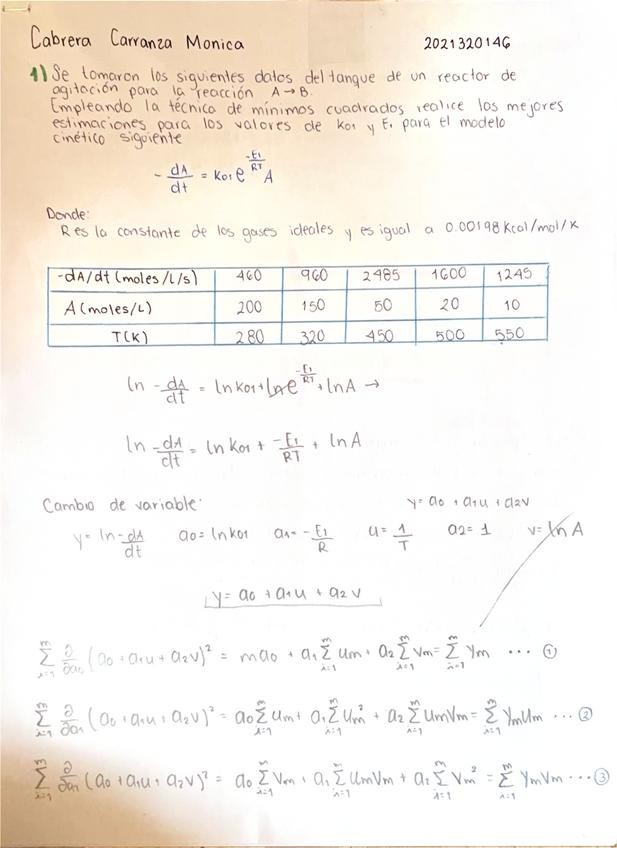 Cabrera Carranza Monica 2021320146
1) Se tomaron los siguientes datos del tanque de un reactor de
agitación para la reacción A → B.
Empleando la técnica de mínimos cuadrados realice los mejores
estimaciones para los valores de K01 y E1 para el modelo
cinético siguiente
- dA/dt = K01 e^(-E1/RT) A
Donde:
R es la constante de los gases ideales y es igual a 0.00198 Kcal/mol/K
-dA/dt (moles/L/s) 460 960 2485 1600 1245
A (moles/L) 200 150 50 20 10
T(K) 280 320 450 500 550
ln -dA/dt = ln K01 + ln e^(-E1/RT) + ln A →
ln -dA/dt = ln K01 + -E1/RT + ln A
Cambio de variable: y = a0 + a1u + a2v
y = ln -dA/dt a0 = ln K01 a1 = -E1/R u = 1/T a2 = 1 v = ln A
y = a0 + a1u + a2v
∑_{i=1}^{m} ∂/∂a0 (a0 + a1u + a2v)² = ma0 + a1 ∑_{i=1}^{m} um + a2 ∑_{i=1}^{m} Vm = ∑_{i=1}^{m} ym ... ①
∑_{i=1}^{m} ∂/∂a1 (a0 + a1u + a2v)² = a0 ∑_{i=1}^{m} um + a1 ∑_{i=1}^{m} um² + a2 ∑_{i=1}^{m} umVm = ∑_{i=1}^{m} ymum ... ②
∑_{i=1}^{m} ∂/∂a1 (a0 + a1u + a2v)² = a0 ∑_{i=1}^{m} Vm + a1 ∑_{i=1}^{m} umVm + a2 ∑_{i=1}^{m} Vm² = ∑_{i=1}^{m} ymVm ... ③